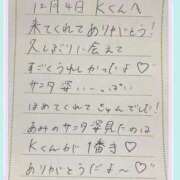 12月4日 Kくんへ
来てくれてありがとう!
久しぶりに会えて
すごくうれしかったよ♡
サンタ姿…っぽい
ほめてくれてきゅんでした!
あみのサンタ姿見たのは
Kくんが1番さ♡
ありがとうだよ〜♡